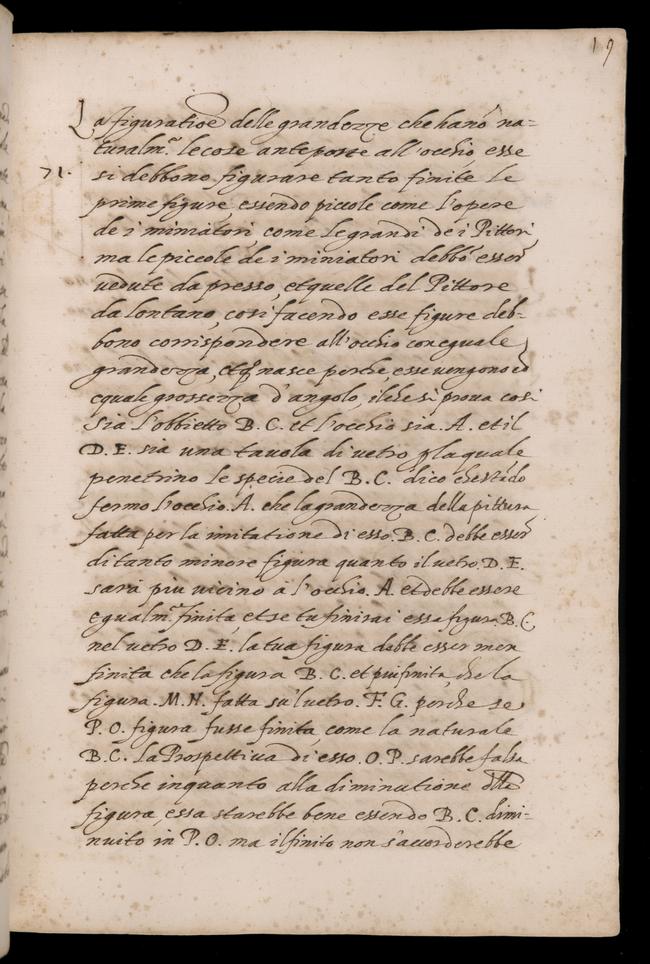 19
La figuratioē delle grandezze che hanō na=
turalm.ᵉ le cose anteposte all'occhio, esse
71. si debbono figurare tanto finite le
prime figure, essendo piccole come l'opere
de i miniatori, come le grandi de i Pittori,
ma le piccole de i miniatori debbō esser
vedute da presso, et quelle del Pittore
da lontano, cosi facendo esse figure deb=
bono corrispondere all'occhio con equale
grandezza, et q̄ nasce perche esse vengono cō
equale grossezza d'angolo, ilche si prova cosi
Sia l'obbietto B. C. et l'occhio sia. A. et il
D. E. sia una tavola di vetro p̱ laquale
penetrino le specie del B. C. dico che stādo
fermo l'occhio. A. che la grandezza della pittura
fatta per la imitatione di esso. B. C. debbe esser
di tanto minore figura quanto il vetro. D. E.
sarà piu vicino à l'occhio. A. et debbe essere
egualm.ᵉ finita, et se tu finirai essa figura. B. C.
nel vetro D. E. la tua figura debbe esser men
finita che la figura B. C. et piu finita, che la
figura. M. N. fatta su'l vetro. F. G. perche se
P. O. figura fusse finita come la naturale
B. C. la Prospettiva di esso. O. P. sarebbe falsa
perche inquanto alla diminutione dlla
figura, essa starebbe bene essendo B. C. dimi-
nuito in P. O. ma il finito non s'accorderebbe